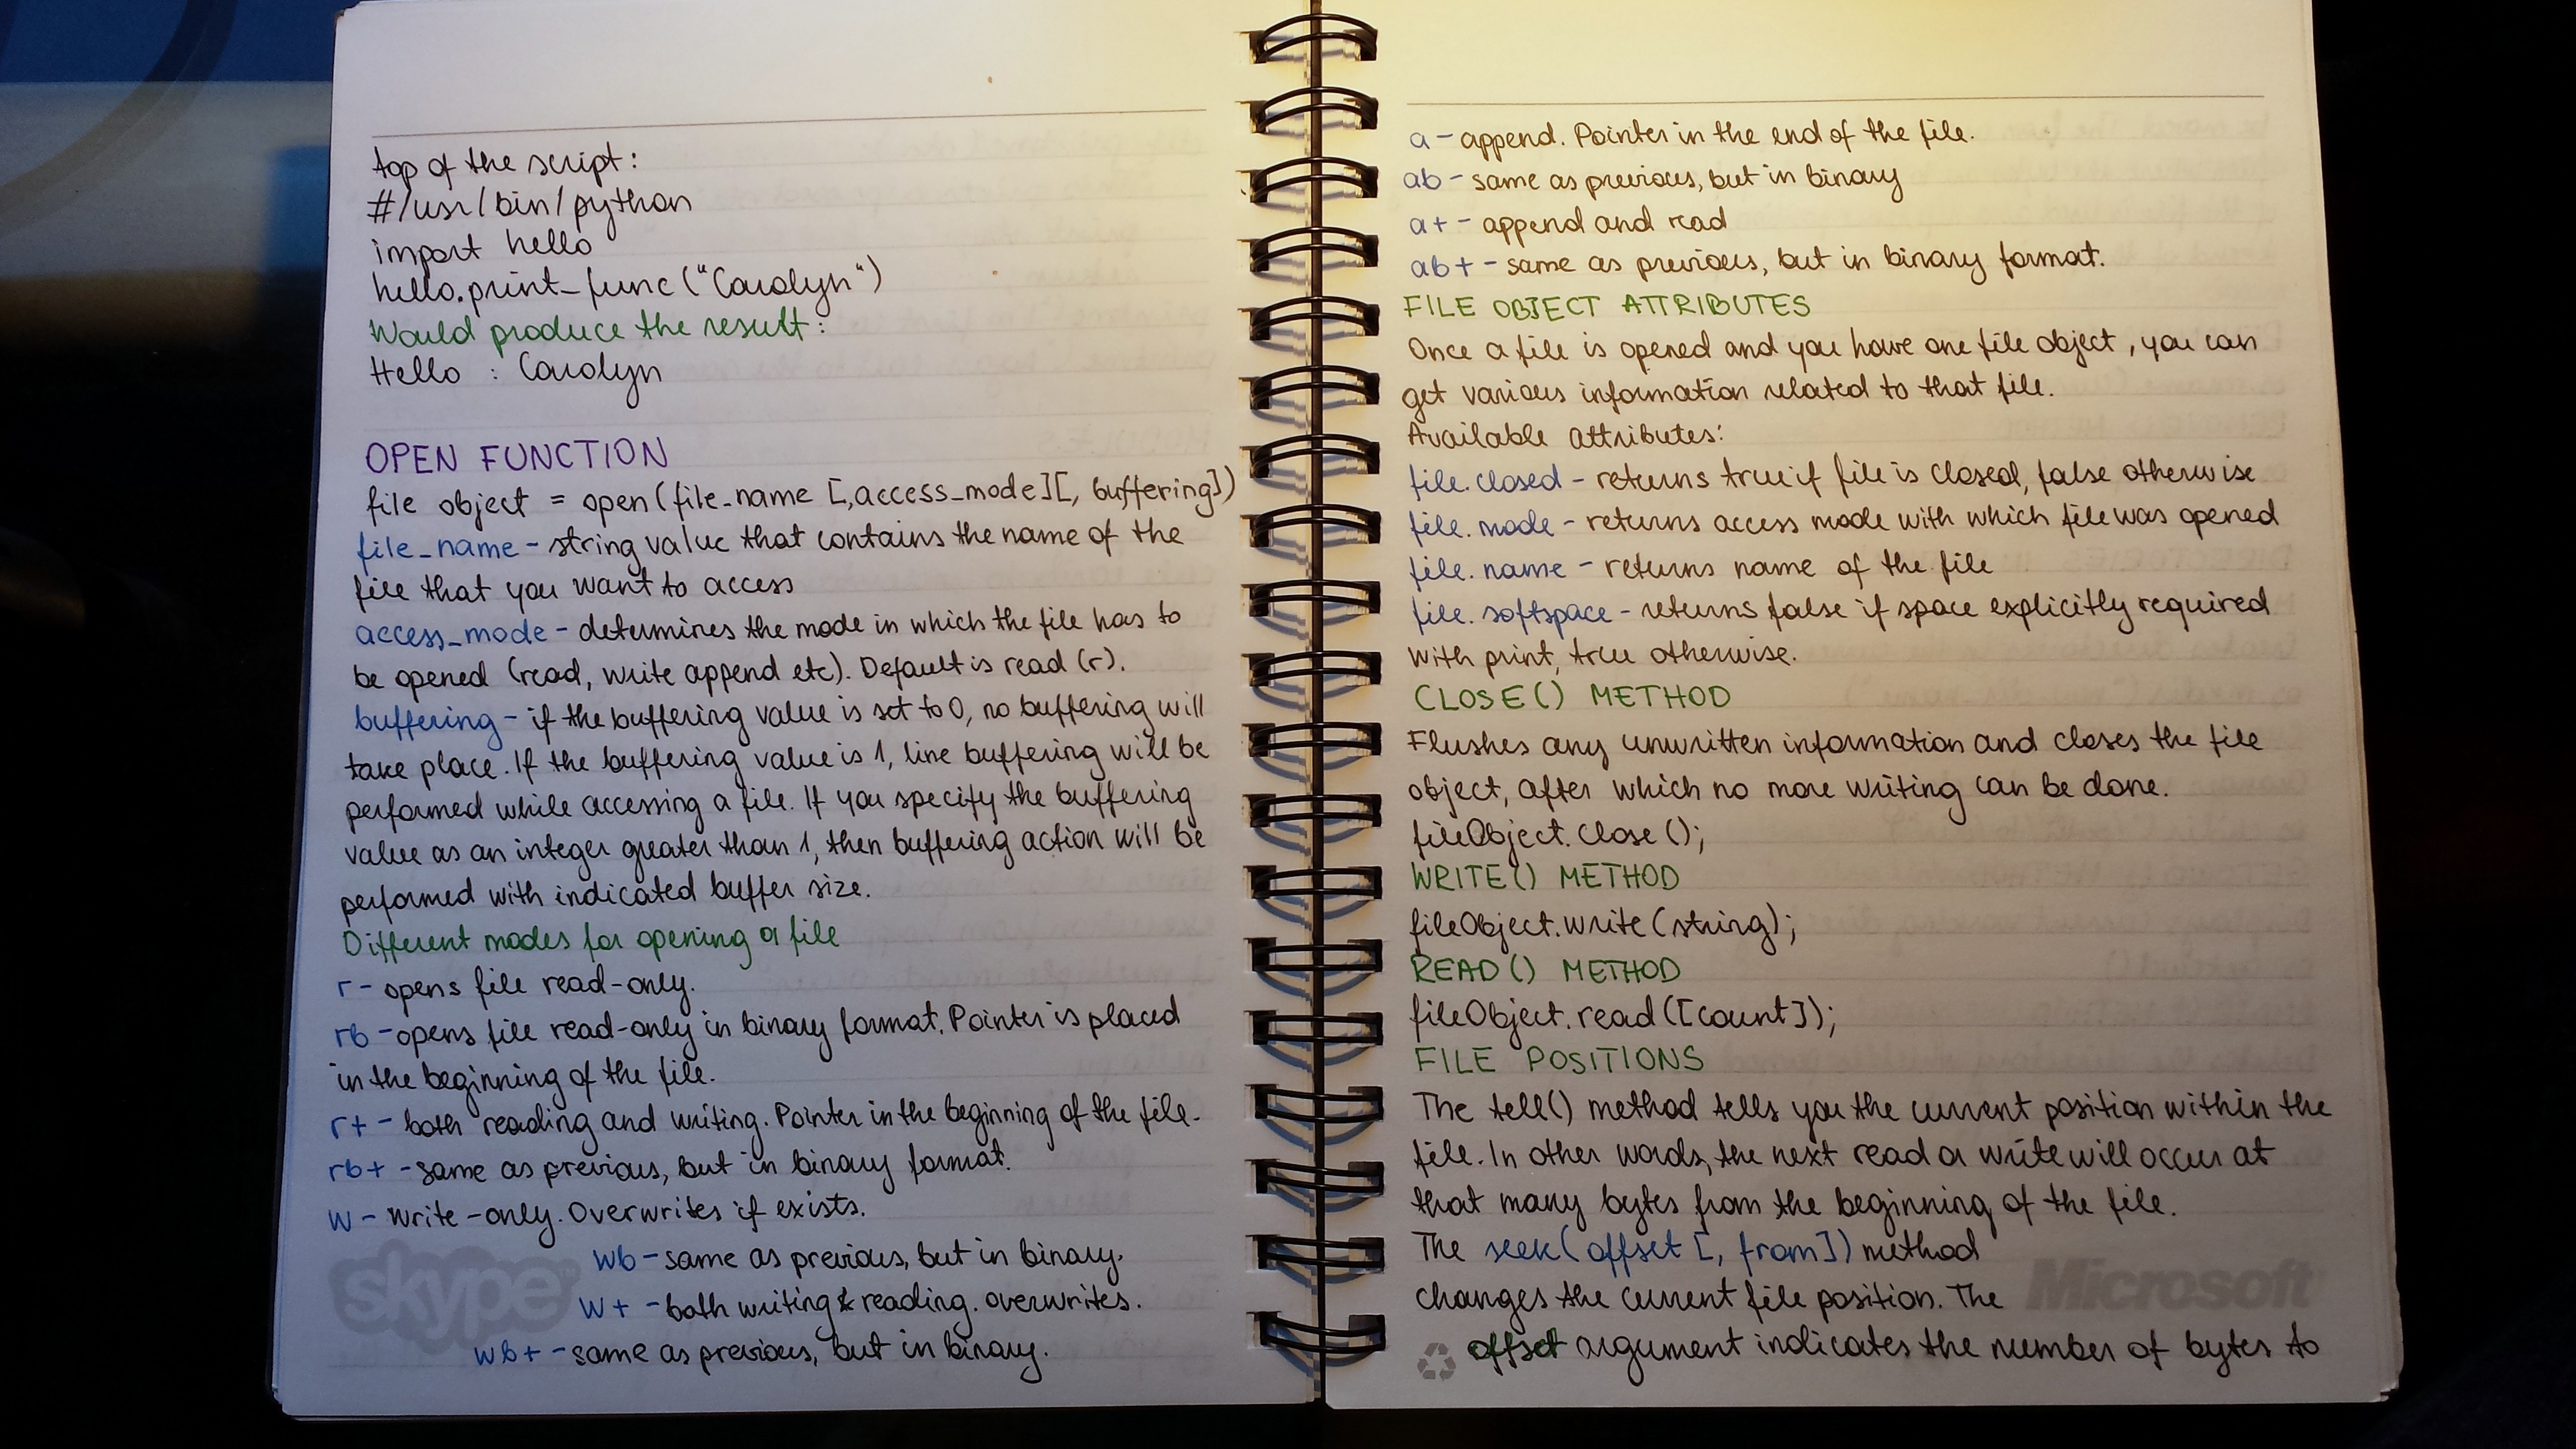 top of the script:
#/usr/bin/python
import hello
hello.print_func("Carolyn")
Would produce the result:
Hello : Carolyn
OPEN FUNCTION
file object = open(file_name [,access_mode][, buffering])
file_name - string value that contains the name of the
file that you want to access
access_mode - determines the mode in which the file has to
be opened (read, write append etc). Default is read (r).
buffering - if the buffering value is set to 0, no buffering will
take place. If the buffering value is 1, line buffering will be
performed while accessing a file. If you specify the buffering
value as an integer greater than 1, then buffering action will be
performed with indicated buffer size.
Different modes for opening a file
r - opens file read-only.
rb - opens file read-only in binary format. Pointer is placed
in the beginning of the file.
r+ - both reading and writing. Pointer in the beginning of the file.
rb+ - same as previous, but in binary format.
w - write-only. Overwrites if exists.
wb - same as previous, but in binary.
w+ - both writing & reading. overwrites.
wb+ - same as previous, but in binary.
skype
a - append. Pointer in the end of the file.
ab - same as previous, but in binary
a+ - append and read
ab+ - same as previous, but in binary format.
FILE OBJECT ATTRIBUTES
Once a file is opened and you have one file object, you can
get various information related to that file.
Available attributes:
file.closed - returns true if file is closed, false otherwise
file.mode - returns access mode with which file was opened
file.name - returns name of the file
file.softspace - returns false if space explicitly required
with print, true otherwise.
CLOSE() METHOD
Flushes any unwritten information and closes the file
object, after which no more writing can be done.
fileObject.close();
WRITE() METHOD
fileObject.write(string);
READ() METHOD
fileObject.read([count]);
FILE POSITIONS
The tell() method tells you the current position within the
file. In other words, the next read or write will occur at
that many bytes from the beginning of the file.
The seek(offset [, from]) method
changes the current file position. The
offset argument indicates the number of bytes to
Microsoft